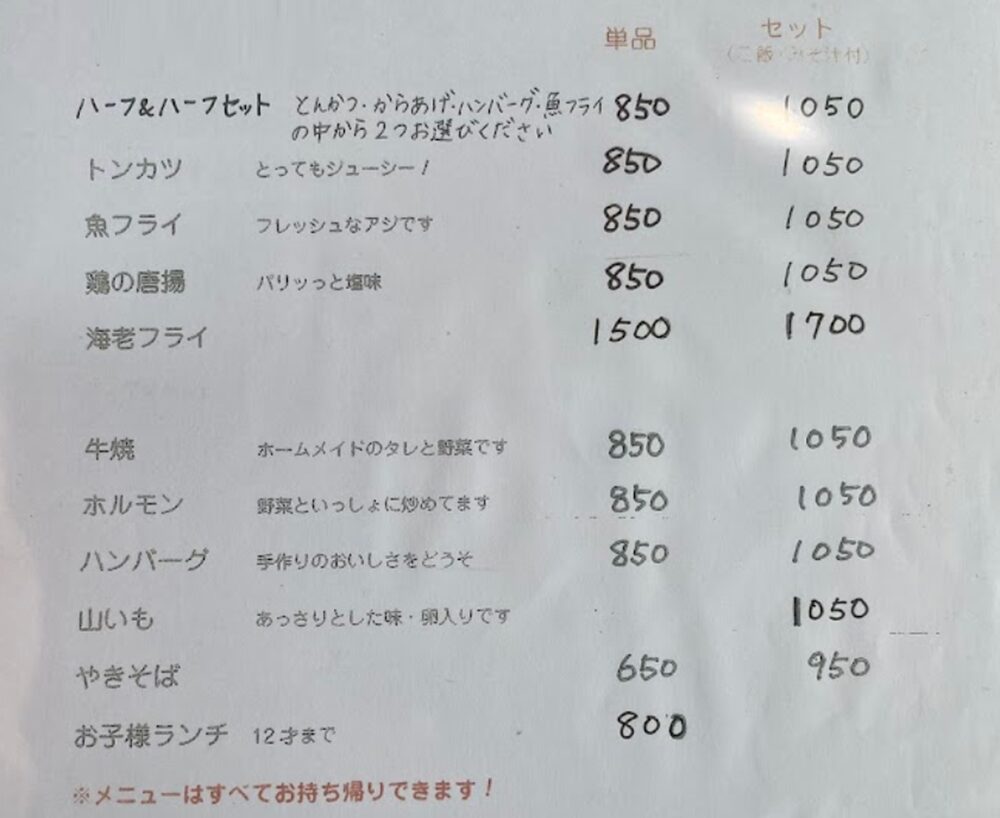 単品 セット
(ご飯・みそ汁付)
ハーフ&ハーフセット とんかつ・からあげ・ハンバーグ・魚フライ 850 1050
の中から2つお選びください
トンカツ とってもジューシー! 850 1050
魚フライ フレッシュなアジです 850 1050
鶏の唐揚 パリッっと塩味 850 1050
海老フライ 1500 1700
牛焼 ホームメイドのタレと野菜です 850 1050
ホルモン 野菜といっしょに炒めてます 850 1050
ハンバーグ 手作りのおいしさをどうぞ 850 1050
山いも あっさりとした味・卵入りです 1050
やきそば 650 950
お子様ランチ 12才まで 800
※メニューはすべてお持ち帰りできます!